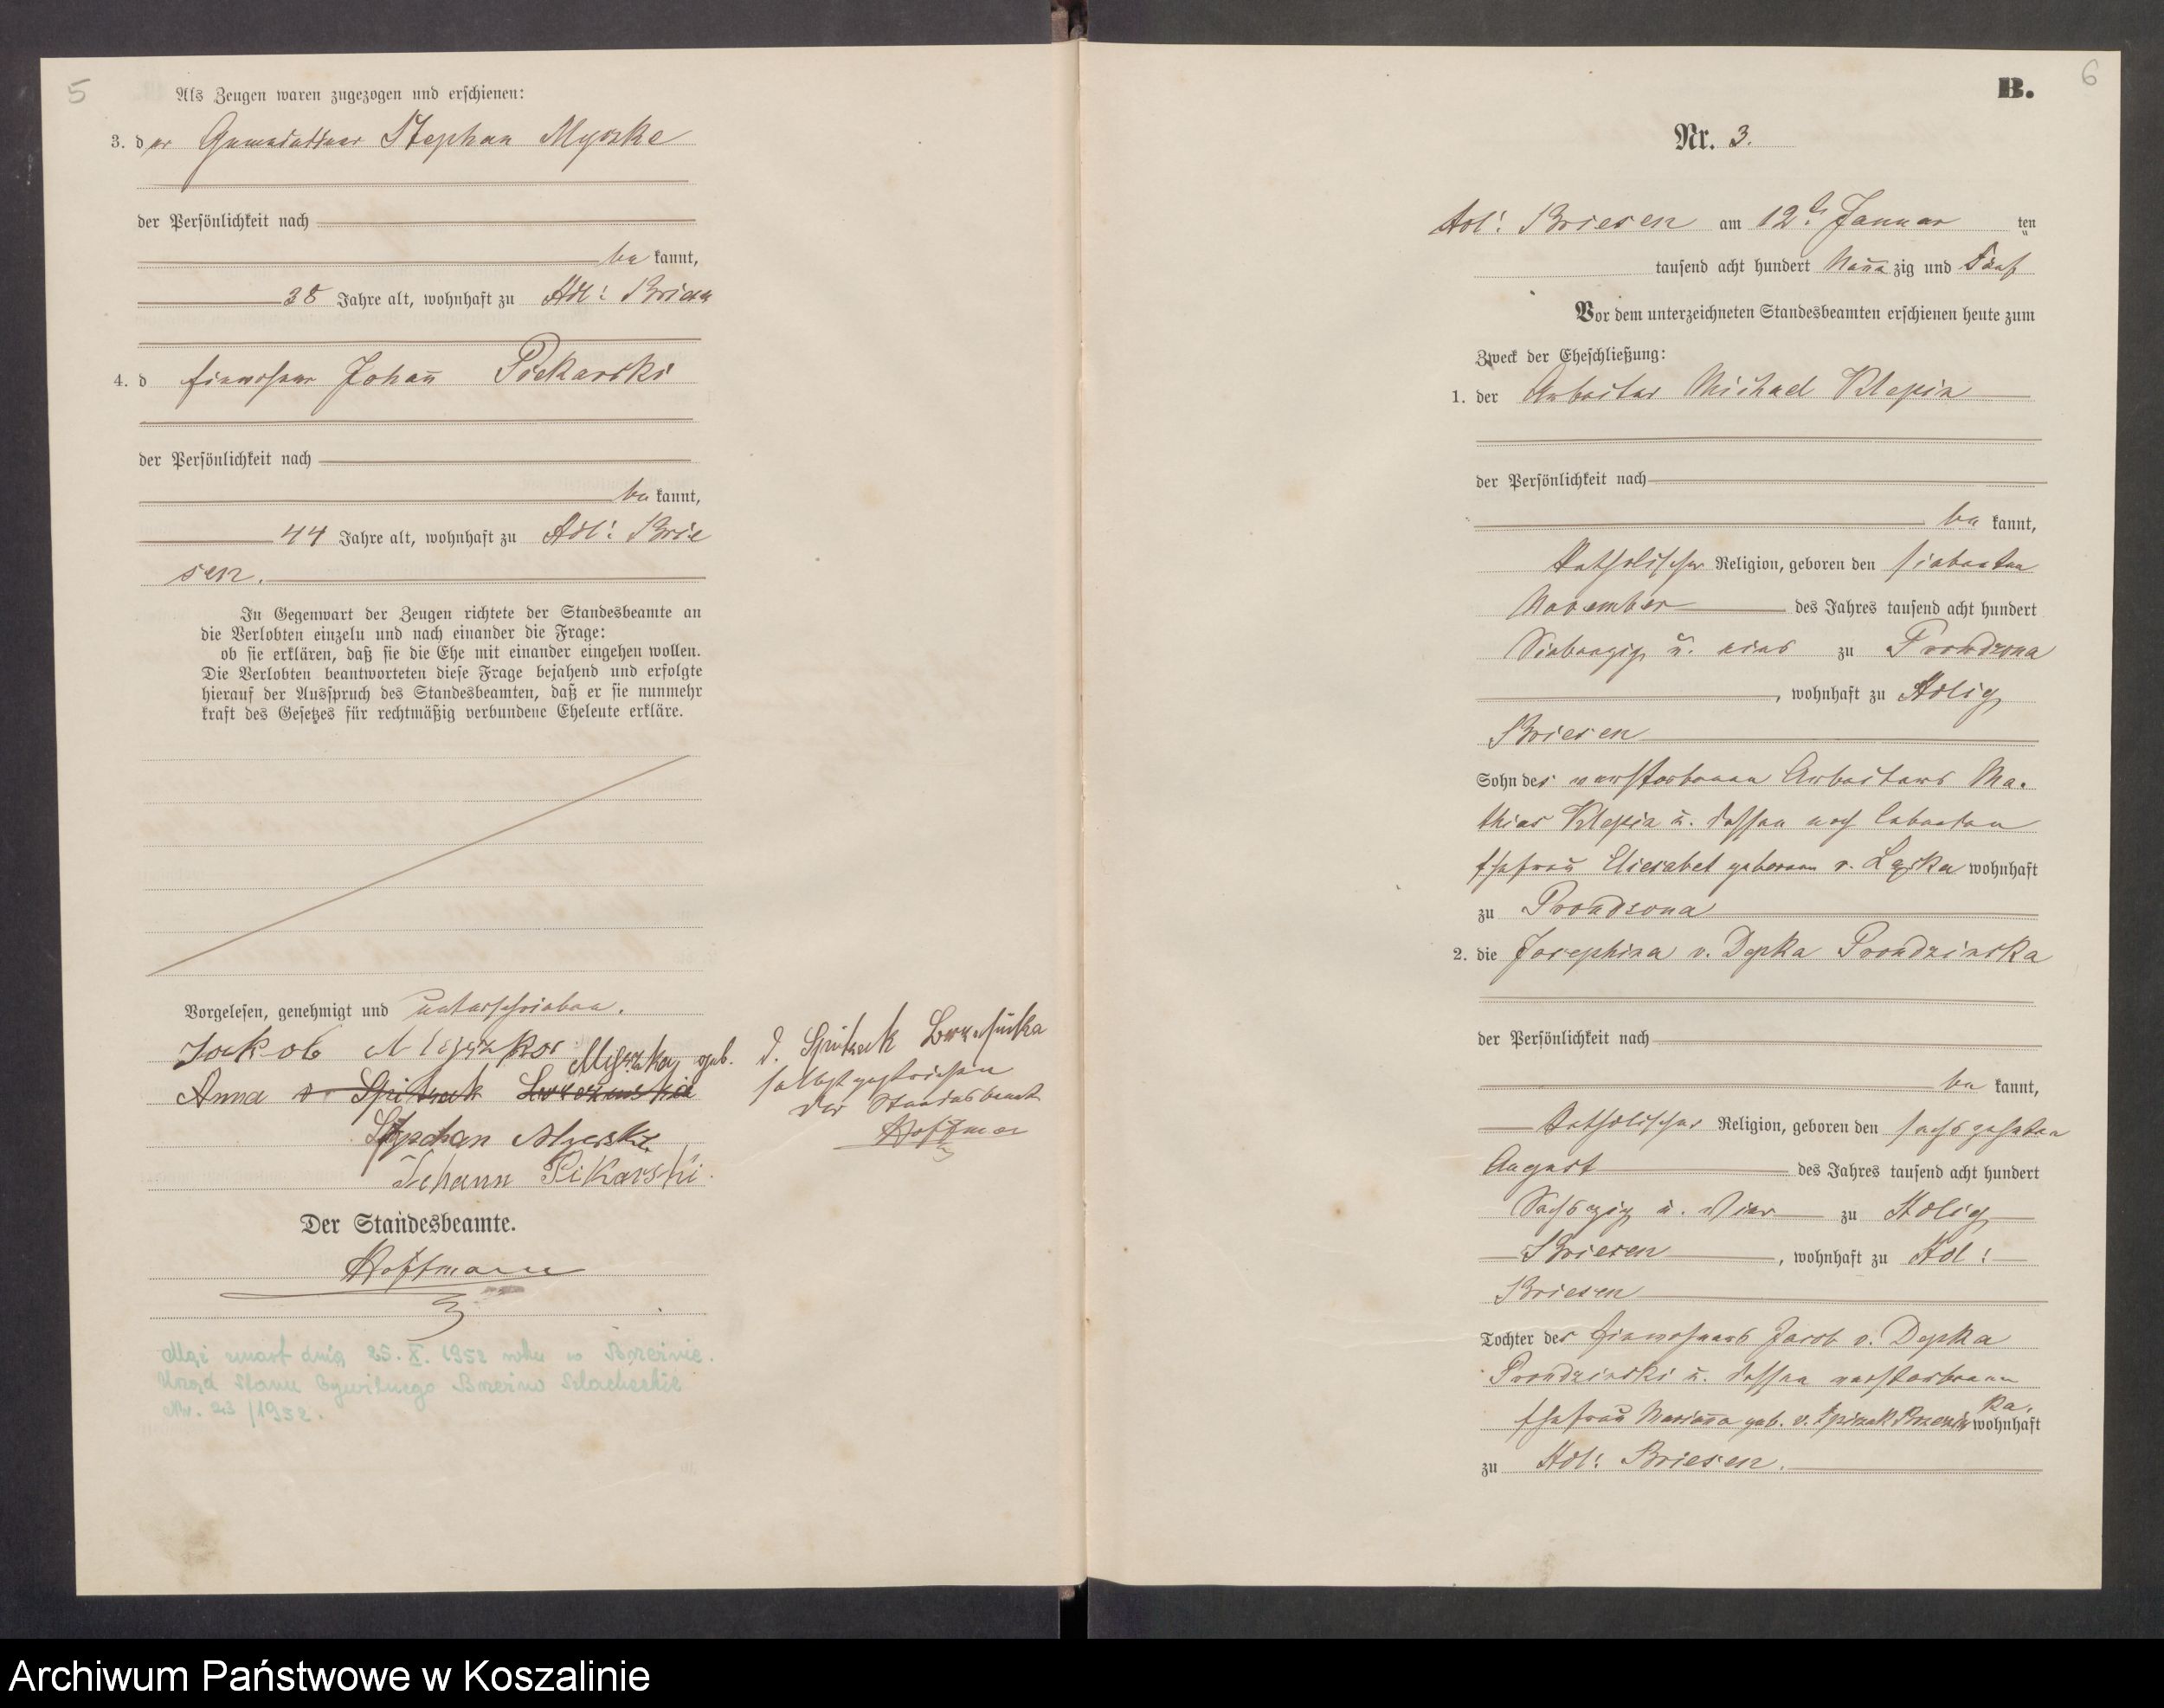 5
Als Zeugen waren zugezogen und erschienen:
3. der Stephan Myszke
der Persönlichkeit nach
be kannt,
38 Jahre alt, wohnhaft zu Adl: Briesen
4. d Eigenthümer Johann Piekarski
der Persönlichkeit nach
be kannt,
44 Jahre alt, wohnhaft zu Adl: Brie
sen.
In Gegenwart der Zeugen richtete der Standesbeamte an
die Verlobten einzeln und nach einander die Frage:
ob sie erklären, daß sie die Ehe mit einander eingehen wollen.
Die Verlobten beantworteten diese Frage bejahend und erfolgte
hierauf der Ausspruch des Standesbeamten, daß er sie nunmehr
kraft des Gesetzes für rechtmäßig verbundene Eheleute erkläre.
Vorgelesen, genehmigt und unterschrieben.
Jakob
Anna v. geb.
Stephan
Johann Pikarski.
Der Standesbeamte.
Hoffmann
v.
selbst gestrichen
Der Standesbeamte
Hoffman
Mąż zmarł dnia 25. X. 1952 roku w Brzeźnie.
Urząd Stanu Cywilnego Brzeźno Szlacheckie
Nr. 23/1952.
6
B.
Nr. 3.
Adl: Briesen am 12ten Januar ten
tausend acht hundert Neun zig und Fünf
Vor dem unterzeichneten Standesbeamten erschienen heute zum
Zweck der Eheschließung:
1. der Arbeiter Michael Klepin
der Persönlichkeit nach
be kannt,
Katholischer Religion, geboren den siebenten
November des Jahres tausend acht hundert
Siebenzig u. eins zu Prondzona
, wohnhaft zu Adlig
Briesen
Sohn des verstorbenen Arbeiters Ma-
thias Klepin u. dessen noch lebenden
Ehefrau Eliesabet geborene v. wohnhaft
zu Prondzona
2. die Josephina v. Depka Prondzinska
der Persönlichkeit nach
be kannt,
Katholischer Religion, geboren den sechszehnten
August des Jahres tausend acht hundert
Sechszig u. Vier zu Adlig
Briesen, wohnhaft zu Adl:
Briesen
Tochter des Eigenthümers Jacob v. Depka
Prondzinski u. dessen verstorbenen
Ehefrau Marianna geb. v. wohnhaft
zu Adl: Briesen.
Archiwum Państwowe w Koszalinie